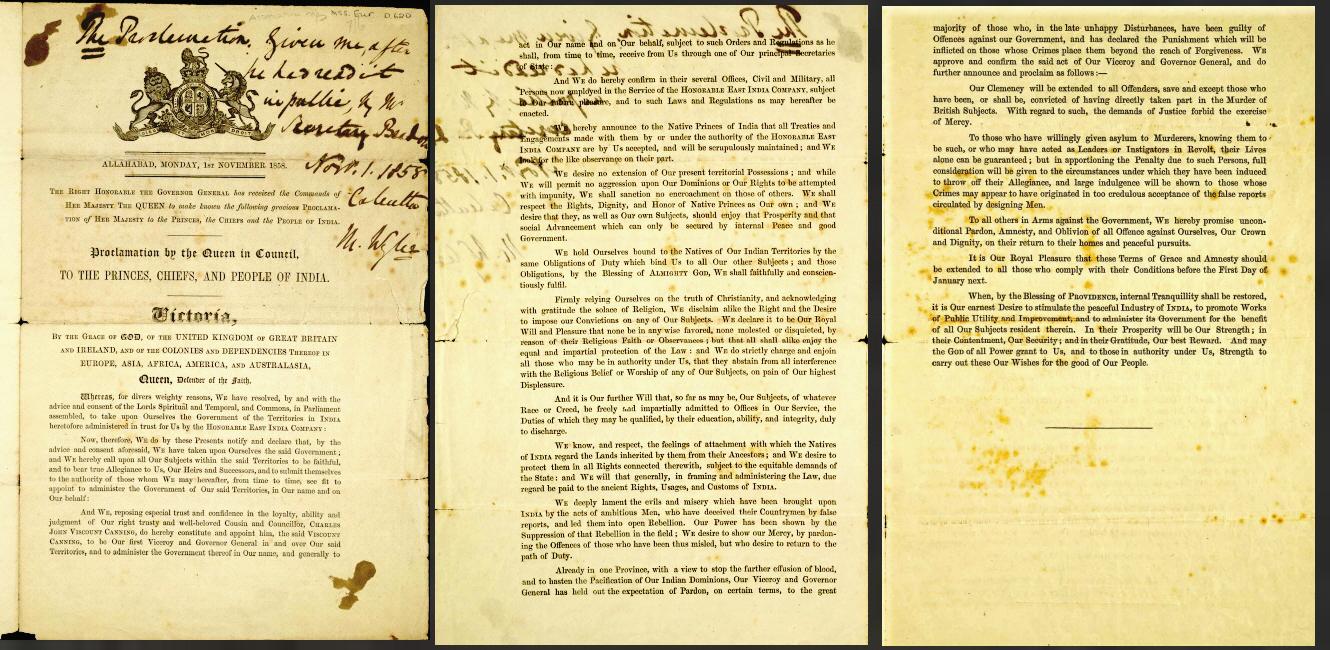 Mss. Eur D 620
The Proclamation. Given me after
he has read it
in public, by Mr
Secretary Beadon
Novr. 1. 1858
Calcutta
ALLAHABAD, MONDAY, 1ST NOVEMBER 1858.
THE RIGHT HONORABLE THE GOVERNOR GENERAL has received the Commands of
HER MAJESTY THE QUEEN to make known the following gracious PROCLAMA-
TION OF HER MAJESTY to the PRINCES, the CHIEFS and the PEOPLE OF INDIA.
Proclamation by the Queen in Council,
TO THE PRINCES, CHIEFS, AND PEOPLE OF INDIA.
Victoria,
BY THE GRACE OF GOD, OF THE UNITED KINGDOM OF GREAT BRITAIN
AND IRELAND, AND OF THE COLONIES AND DEPENDENCIES THEREOF IN
EUROPE, ASIA, AFRICA, AMERICA, AND AUSTRALASIA,
Queen, Defender of the Faith.
Whereas, for divers weighty reasons, WE have resolved, by and with the
advice and consent of the Lords Spiritual and Temporal, and Commons, in Parliament
assembled, to take upon Ourselves the Government of the Territories in INDIA
heretofore administered in trust for Us by the HONORABLE EAST INDIA COMPANY :
Now, therefore, WE do by these Presents notify and declare that, by the
advice and consent aforesaid, WE have taken upon Ourselves the said Government ;
and WE hereby call upon all Our Subjects within the said Territories to be faithful,
and to bear true Allegiance to Us, Our Heirs and Successors, and to submit themselves
to the authority of those whom WE may hereafter, from time to time, see fit to
appoint to administer the Government of Our said Territories, in Our name and on
Our behalf :
And WE, reposing especial trust and confidence in the loyalty, ability and
judgment of Our right trusty and well-beloved Cousin and Councillor, CHARLES
JOHN VISCOUNT CANNING, do hereby constitute and appoint him, the said VISCOUNT
CANNING, to be Our first Viceroy and Governor General in and over Our said
Territories, and to administer the Government thereof in Our name, and generally to
act in Our name and on Our behalf, subject to such Orders and Regulations as he
shall, from time to time, receive from Us through one of Our principal Secretaries
of State :
And WE do hereby confirm in their several Offices, Civil and Military, all
Persons now employed in the Service of the HONORABLE EAST INDIA COMPANY, subject
to Our future pleasure, and to such Laws and Regulations as may hereafter be
enacted.
WE hereby announce to the Native Princes of India that all Treaties and
Engagements made with them by or under the authority of the HONORABLE EAST
INDIA COMPANY are by Us accepted, and will be scrupulously maintained ; and WE
look for the like observance on their part.
WE desire no extension of Our present territorial Possessions ; and while
WE will permit no aggression upon Our Dominions or Our Rights to be attempted
with impunity, WE shall sanction no encroachment on those of others. WE shall
respect the Rights, Dignity, and Honor of Native Princes as Our own ; and WE
desire that they, as well as Our own Subjects, should enjoy that Prosperity and that
social Advancement which can only be secured by internal Peace and good
Government.
WE hold Ourselves bound to the Natives of Our Indian Territories by the
same Obligations of Duty which bind Us to all Our other Subjects ; and those
Obligations, by the Blessing of ALMIGHTY GOD, WE shall faithfully and conscien-
tiously fulfil.
Firmly relying Ourselves on the truth of Christianity, and acknowledging
with gratitude the solace of Religion, WE disclaim alike the Right and the Desire
to impose our Convictions on any of Our Subjects. WE declare it to be Our Royal
Will and Pleasure that none be in any wise favored, none molested or disquieted, by
reason of their Religious Faith or Observances ; but that all shall alike enjoy the
equal and impartial protection of the Law : and WE do strictly charge and enjoin
all those who may be in authority under Us, that they abstain from all interference
with the Religious Belief or Worship of any of Our Subjects, on pain of Our highest
Displeasure.
And it is Our further Will that, so far as may be, Our Subjects, of whatever
Race or Creed, be freely and impartially admitted to Offices in Our Service, the
Duties of which they may be qualified, by their education, ability, and integrity, duly
to discharge.
WE know, and respect, the feelings of attachment with which the Natives
of INDIA regard the Lands inherited by them from their Ancestors ; and WE desire to
protect them in all Rights connected therewith, subject to the equitable demands of
the State : and WE will that generally, in framing and administering the Law, due
regard be paid to the ancient Rights, Usages, and Customs of INDIA.
WE deeply lament the evils and misery which have been brought upon
INDIA by the acts of ambitious Men, who have deceived their Countrymen by false
reports, and led them into open Rebellion. Our Power has been shown by the
Suppression of that Rebellion in the field ; WE desire to show our Mercy, by pardon-
ing the Offences of those who have been thus misled, but who desire to return to the
path of Duty.
Already in one Province, with a view to stop the further effusion of blood,
and to hasten the Pacification of Our Indian Dominions, Our Viceroy and Governor
General has held out the expectation of Pardon, on certain terms, to the great
majority of those who, in the late unhappy Disturbances, have been guilty of
Offences against our Government, and has declared the Punishment which will be
inflicted on those whose Crimes place them beyond the reach of Forgiveness. WE
approve and confirm the said act of Our Viceroy and Governor General, and do
further announce and proclaim as follows :—
Our Clemency will be extended to all Offenders, save and except those who
have been, or shall be, convicted of having directly taken part in the Murder of
British Subjects. With regard to such, the demands of Justice forbid the exercise
of Mercy.
To those who have willingly given asylum to Murderers, knowing them to
be such, or who may have acted as Leaders or Instigators in Revolt, their Lives
alone can be guaranteed ; but in apportioning the Penalty due to such Persons, full
consideration will be given to the circumstances under which they have been induced
to throw off their Allegiance, and large indulgence will be shown to those whose
Crimes may appear to have originated in too credulous acceptance of the false reports
circulated by designing Men.
To all others in Arms against the Government, WE hereby promise uncon-
ditional Pardon, Amnesty, and Oblivion of all Offence against Ourselves, Our Crown
and Dignity, on their return to their homes and peaceful pursuits.
It is Our Royal Pleasure that these Terms of Grace and Amnesty should
be extended to all those who comply with their Conditions before the First Day of
January next.
When, by the Blessing of PROVIDENCE, internal Tranquillity shall be restored,
it is Our earnest Desire to stimulate the peaceful Industry of INDIA, to promote Works
of Public Utility and Improvement, and to administer its Government for the benefit
of all Our Subjects resident therein. In their Prosperity will be Our Strength ; in
their Contentment, Our Security ; and in their Gratitude, Our best Reward. And may
the GOD of all Power grant to Us, and to those in authority under Us, Strength to
carry out these Our Wishes for the good of Our People.